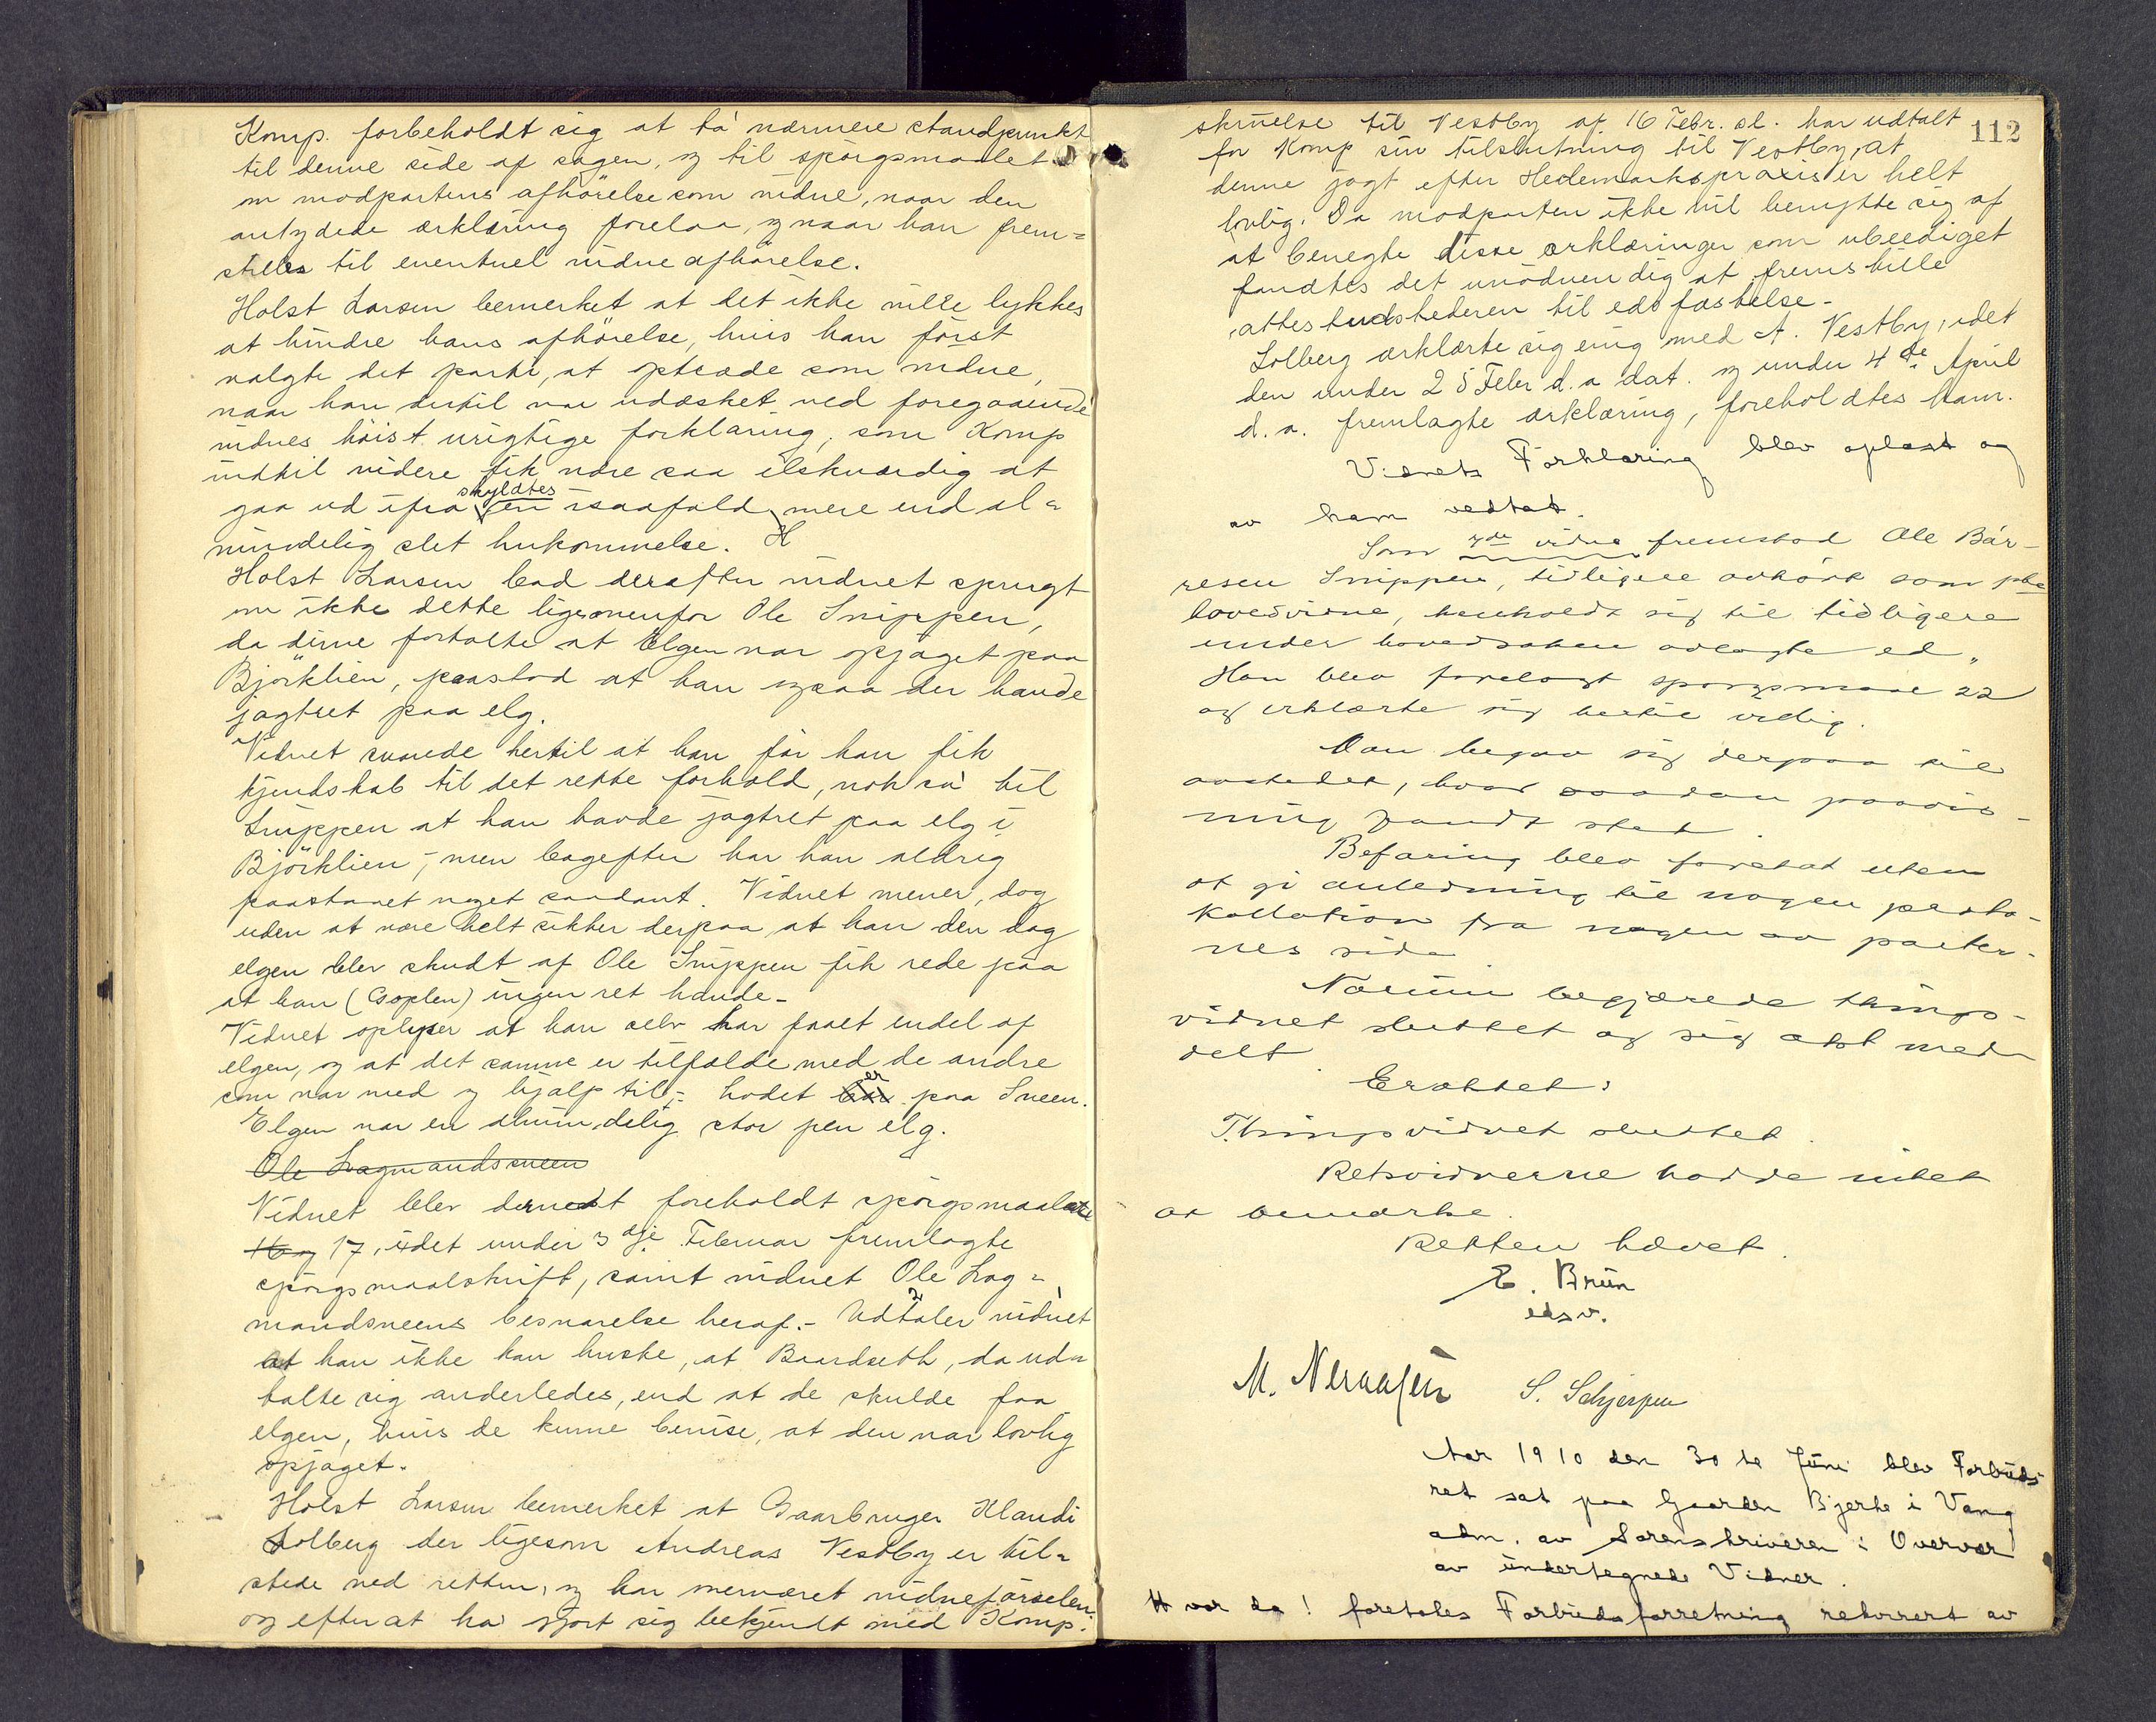 Komp. forbeholdt sig at ta' nærmere standpunkt
til denne side af sagen, og til spörgsmaalet
om modpartens afhörelse som vidne, naar den
antydede erklæring forelaa, og naar han frem=
stilles til eventuel vidneafhörelse.
Holst Larsen bemerket at det ikke vilde lykkes
at hindre hans afhörelse, hvis han först
valgte det parti, at optræde som vidne,
naar han dertil var udæsket ved foregaaende
vidnes höist urigtige forklaring, som Komp
indtil videre fik være saa elskværdig at
gaa ud ifra skyldtes en isaafald mere end al=
mindelig slet hukommelse. H
Holst Larsen bad derefter vidnet spurgt
om ikke dette ligeovenfor Ole Snippen,
da denne fortalte at Elgen var opjaget paa
Björklien, paastod at han ogsaa der havde
jagtret paa elg.
Vidnet svarede hertil at han för han fik
kjendskab til det rette forhold, nok sa' til
Snippen at han havde jagtret paa elg i
Björklien, men bagefter har han aldrig
paastaaet noget saadant. Vidnet mener, dog
uden at være helt sikker derpaa, at han den dag
elgen blev skudt af Ole Snippen fik rede paa
at han (Csoplen) ingen ret havde.-
Vidnet oplyser at han selv har faaet endel af
elgen, og at det samme er tilfælde med de andre
som var med og hjalp til,- hodet er paa Sneen.
Elgen var en almindelig stor pen elg.
Ole Lagmandsneen
Vidnet blev dernæst foreholdt spörgsmaalene
16 og 17, i det under 3 dje Februar fremlagte
spörgsmaalskrift, samt vidnet Ole Lag=
mandsneens besvarelse heraf.- Udtaler vidnet
at han ikke kan huske, at Baardseth, da ud=
talte sig anderledes, end at de skulde faa
elgen, hvis de kunne bevise, at den var lovlig
opjaget.
Holst Larsen bemerket at Gaarbruger Klandi
Solberg der ligesom Andreas Vestby er til=
stede ved retten, og har overværet vidneförselen
og efter at ha gjort sig bekjendt med Komp.
112
skrivelse til Vestby af 16 Febr. sl. har udtalt
for Komp sin tilslutning til Vestby, at
denne jagt efter Hedemarkspraxis er helt
lovlig. Da modparten ikke vil benytte sig af
at benegte disse erklæringer som ubeediget
fandtes det unödvendig at fremstille
attestudstederen til edsfæstelse.-
Solberg erklærte sig enig med A. Vestby, idet
den under 25 Febr d. a dat. og under 4de April
d. a. fremlagte erklæring, foreholdtes ham.
Vidnets Forklaring blev oplæst og
av ham vedtat.
Som 7de vidne fremstod Ole Bär-
resen Snippen, tidligere avhört som 1ste
hovedvidne, henholdt sig til tidligere
under hovedsaken avlagte ed.
Han blev forelagt sporgsmaal 22
og erklærte sig hertil uvidig.
Man begav sig derpaa til
aastedet, hvor saadan paavis-
ning fandt sted.
Befaring blev foretat uten
at gi anledning til nogen proto-
kollation fra nogen av parter-
nes side.
Næumm begjærede things-
vidnet sluttet og sig akt med-
delt.
Eraktet:
Thingsvidnet sluttet.
Retsvidnerne hadde intet
at bemerke.
Retten hævet.
E. Bruun
edsv.
M. Neraasen S. Schjerpen
Aar 1910 den 30 te Juni blev Forbuds-
ret sat paa Gaarden Bjerke i Vang
adm. av Sorenskriveren i Overvær
av undertegnede Vidner.
Hvor da! foretoges Forbudsforretning rekvirert av